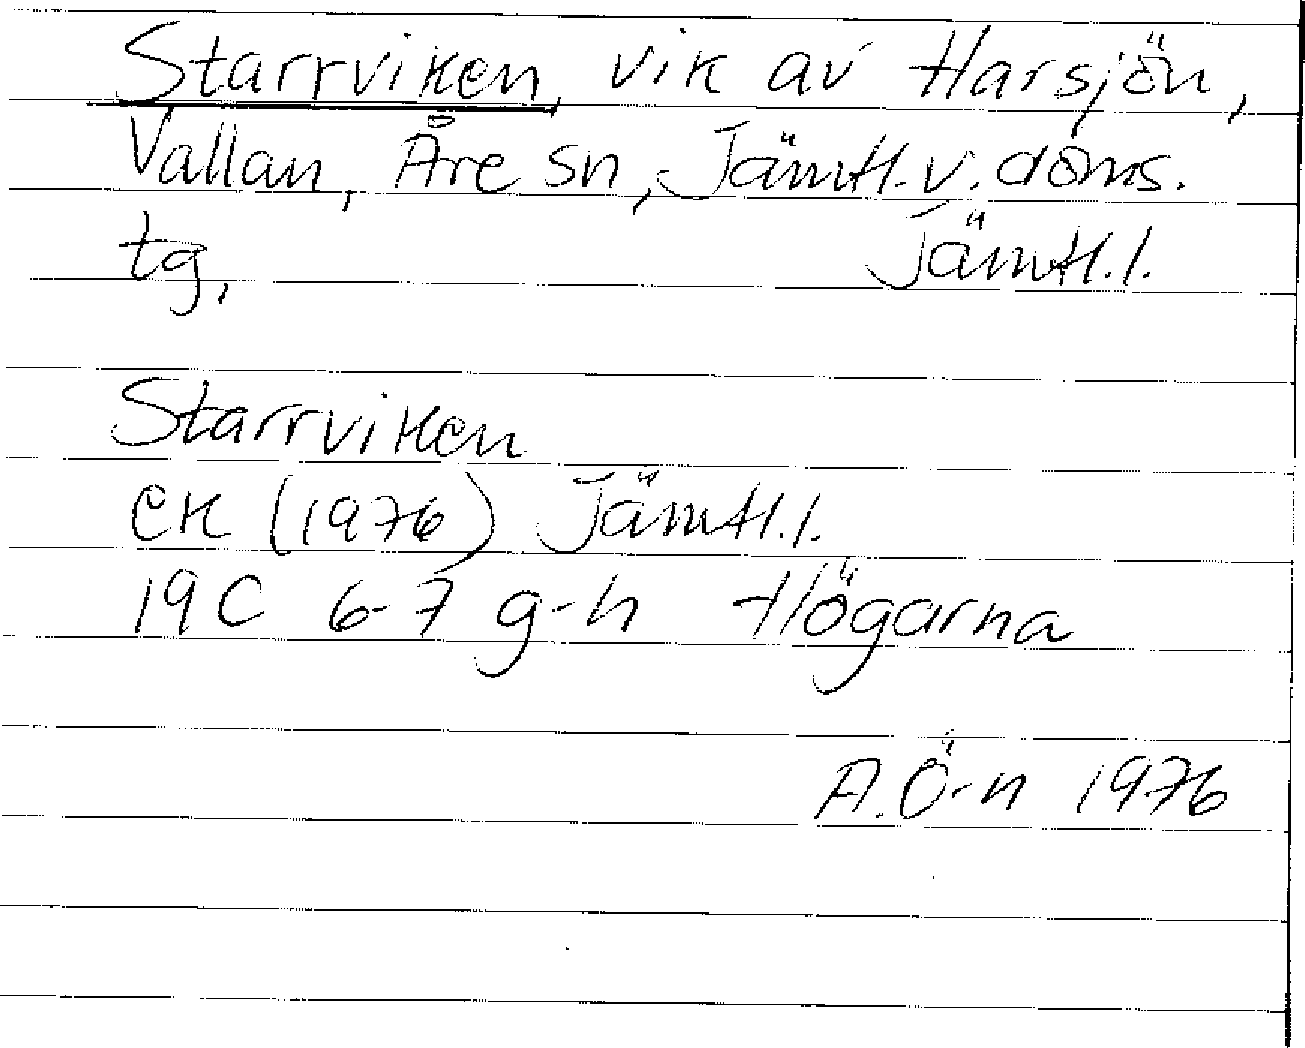 Starrviken, vik av Harsjön,
Vallan, Åre sn, Jämtl. v. doms.
tg, Jämtl. l.
Starrviken
EK (1976) Jämtl. l.
19C 6-7 g-h Högarna
A. Ö-n 1976